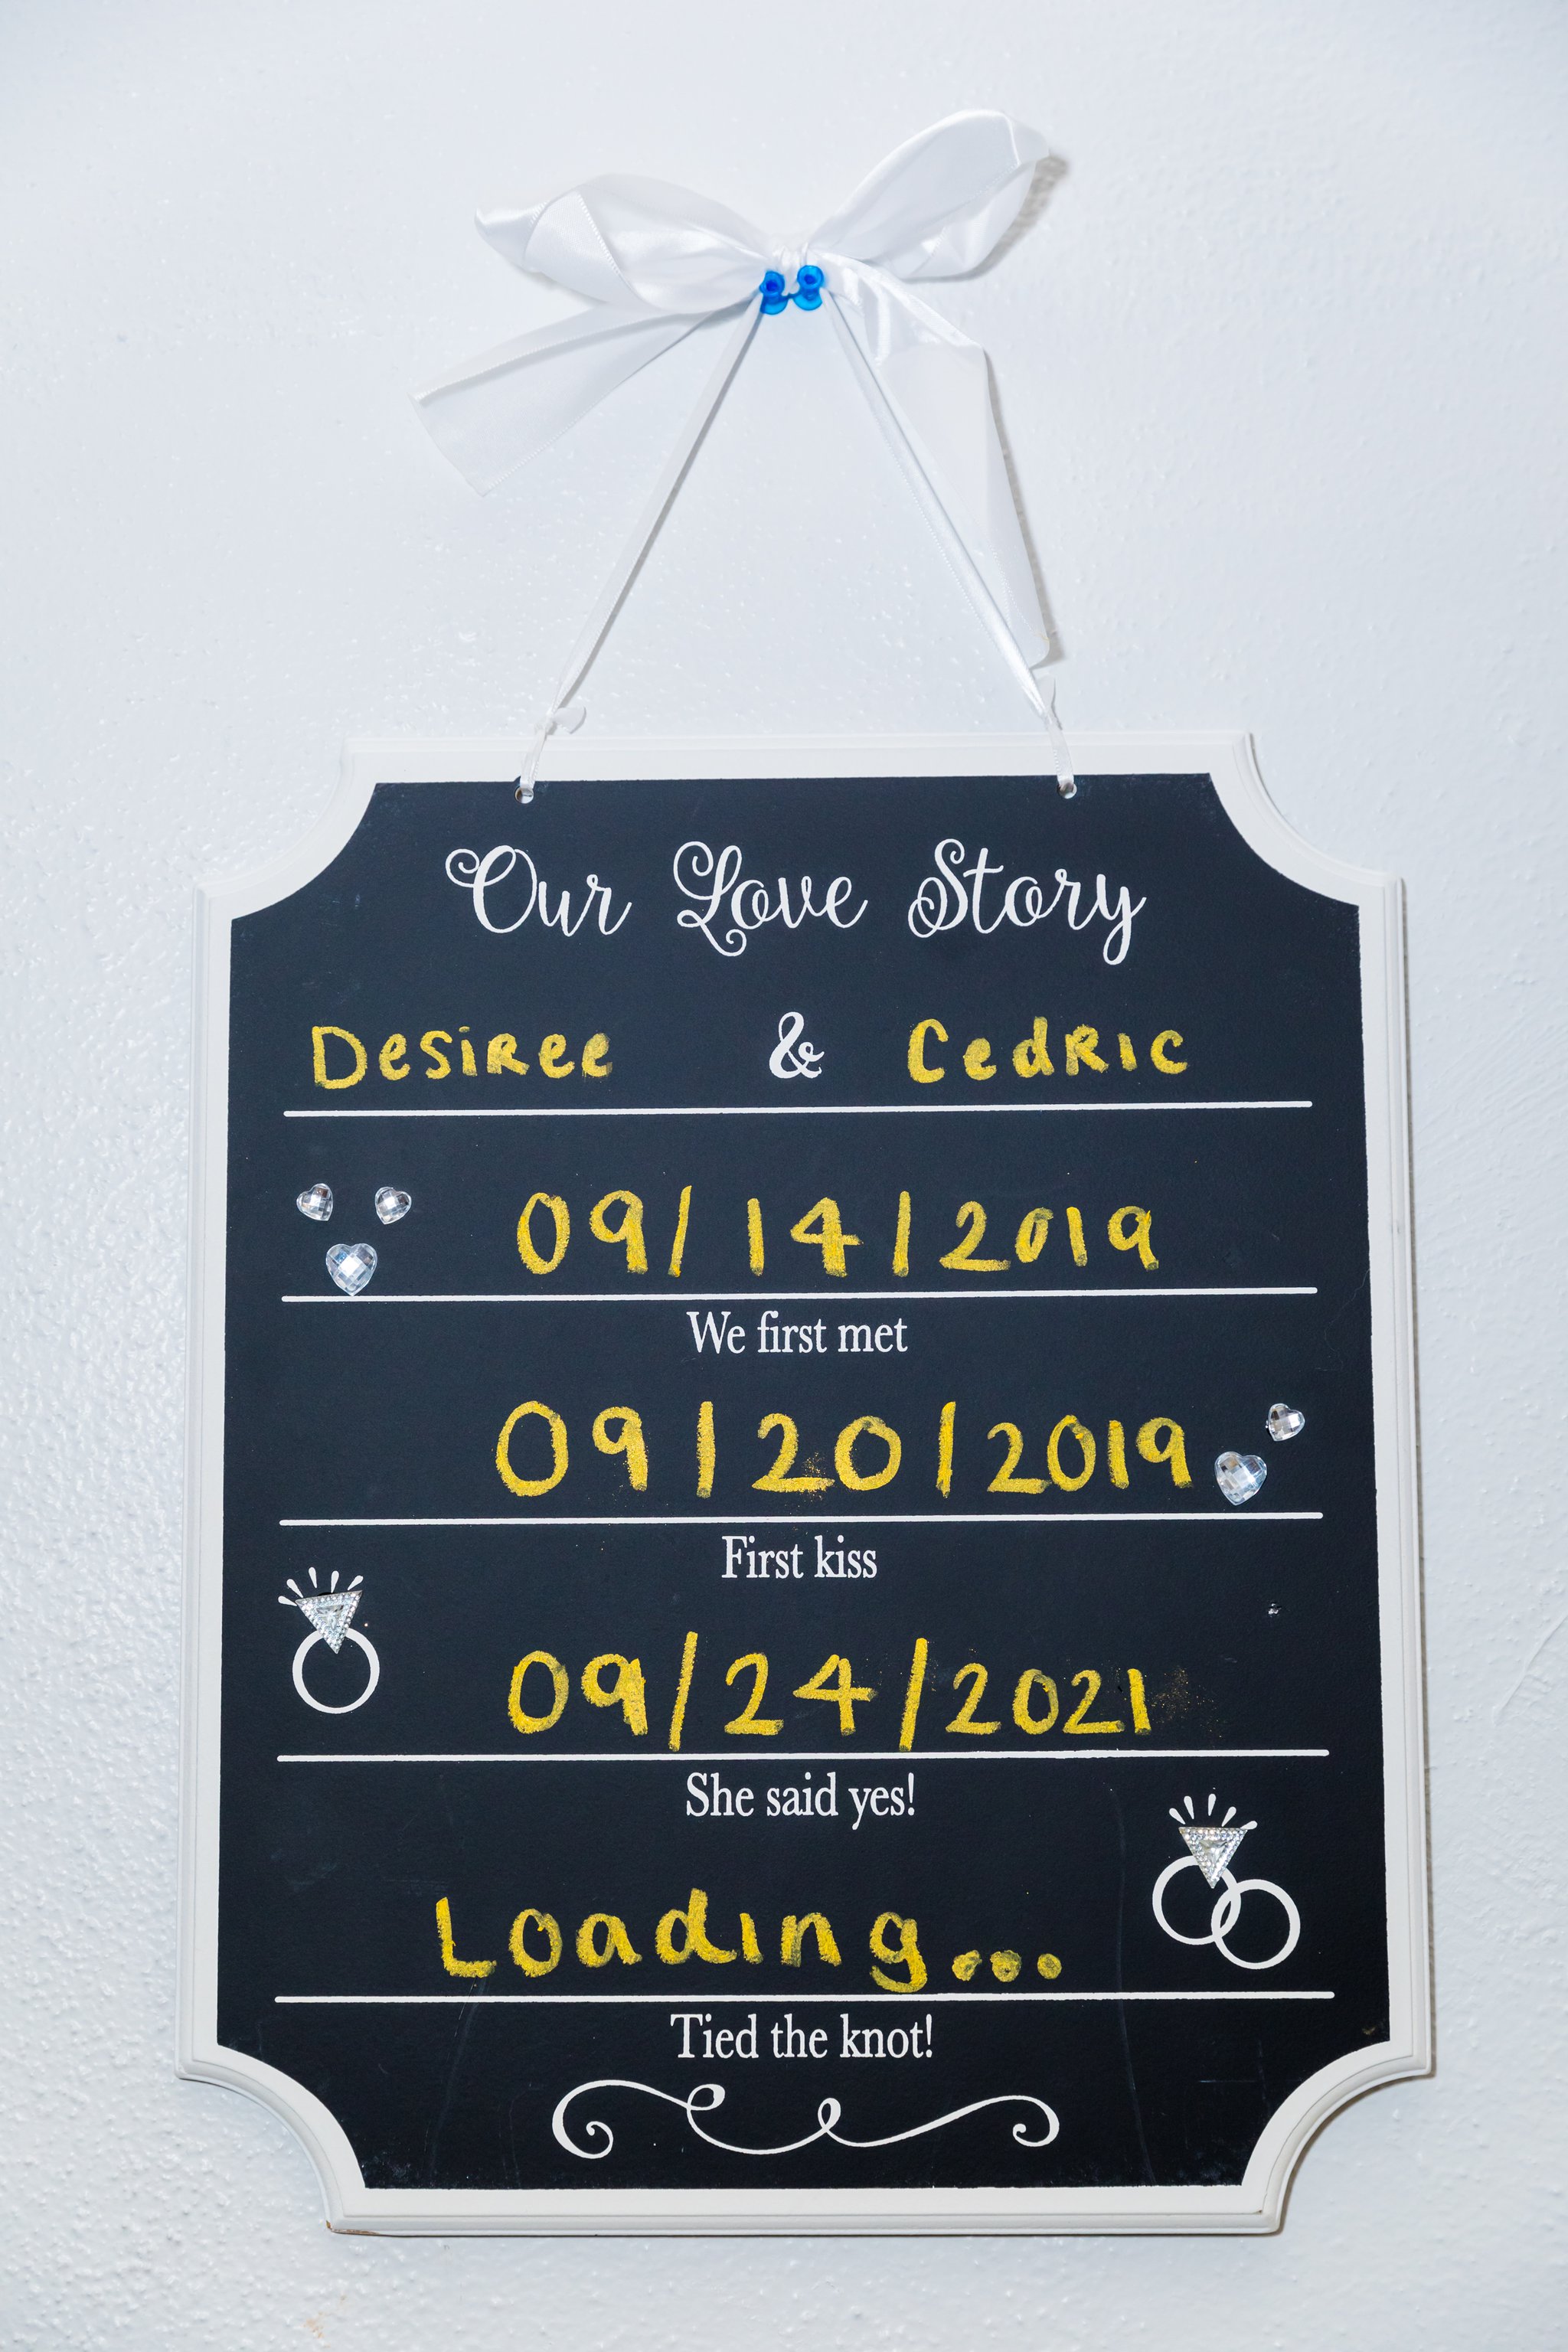 Our Love Story
Desiree & Cedric
09/14/2019
We first met
09/20/2019
First kiss
09/24/2021
She said yes!
Loading...
Tied the knot!